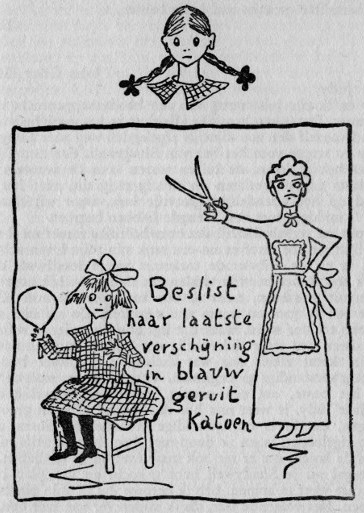 Beslist
haar laatste
verschijning
in blauw
geruit
Katoen